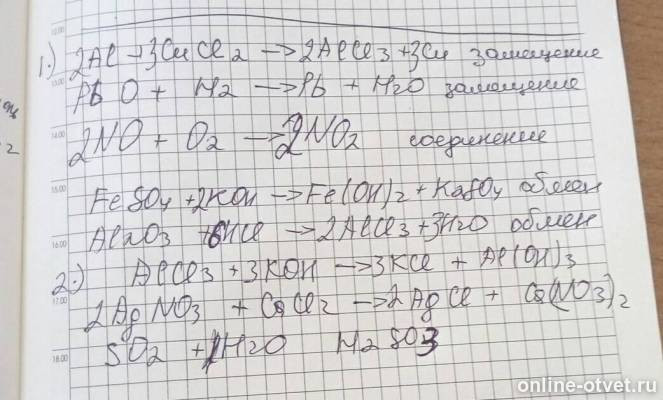 1.) 2Al + 3CuCl2 —> 2AlCl3 + 3Cu замощение
PbO + H2 —> Pb + H2O замощение
2NO + O2 —> 2NO2 соединение
FeSO4 + 2KOH —> Fe(OH)2 + K2SO4 обмен
Al2O3 + 6HCl —> 2AlCl3 + 3H2O обмен
2.) AlCl3 + 3KOH —> 3KCl + Al(OH)3
2AgNO3 + CaCl2 —> 2AgCl + Ca(NO3)2
SO2 + H2O H2SO3
12.00
13.00
14.00
15.00
16.00
17.00
18.00
online-otvet.ru